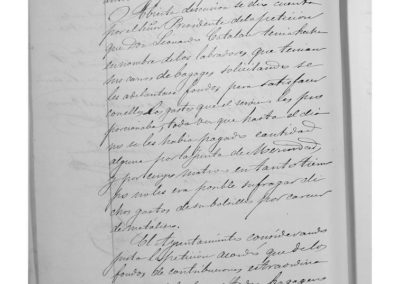 Abierta discusion se dio cuenta
por el Señor Presidente de la peticion
que Don Leonardo Catalan tenia hecha
en nombre de los labradores que tenian
sus carros de bagages solicitando se
les adelantara fondos para satisfacer
con ellos los gastos que el servicio les pro
porcionaba, toda vez que hasta el dia
no se les habia pagado cantidad
alguna por la Junta de
y por cuyo motivo en tanto tiem
po no les era posible sufragar di
chos gastos de su bolsillo por carecer
de metalico.
El Ayuntamiento considerando
justa la peticion acordó que de los
fondos de contribuciones estraordina
bagages